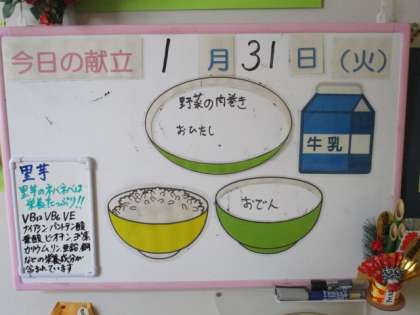 今日の献立 1月31日(火)
野菜の肉巻き
おひたし
牛乳
おでん
里芋
里芋のネバネバは
栄養たっぷり!!
VB1 VB6 VE
ナイアシン パントテン酸
葉酸 ビオチン ヨウ素
カリウム リン 亜鉛 銅
などの栄養成分が
含まれています